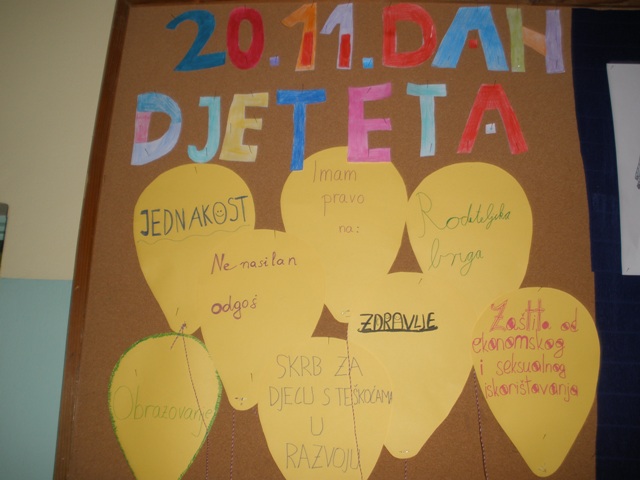 20.11.DAN
DJETETA
JEDNAKOST
Imam
pravo
na:
Roditeljska
briga
Nenasilan
odgoj
ZDRAVLJE
Zaštita od
ekonomskog
i seksualnog
iskorištavanja
Obrazovanje
SKRB ZA
DJECU S TEŠKOĆAMA
U
RAZVOJU